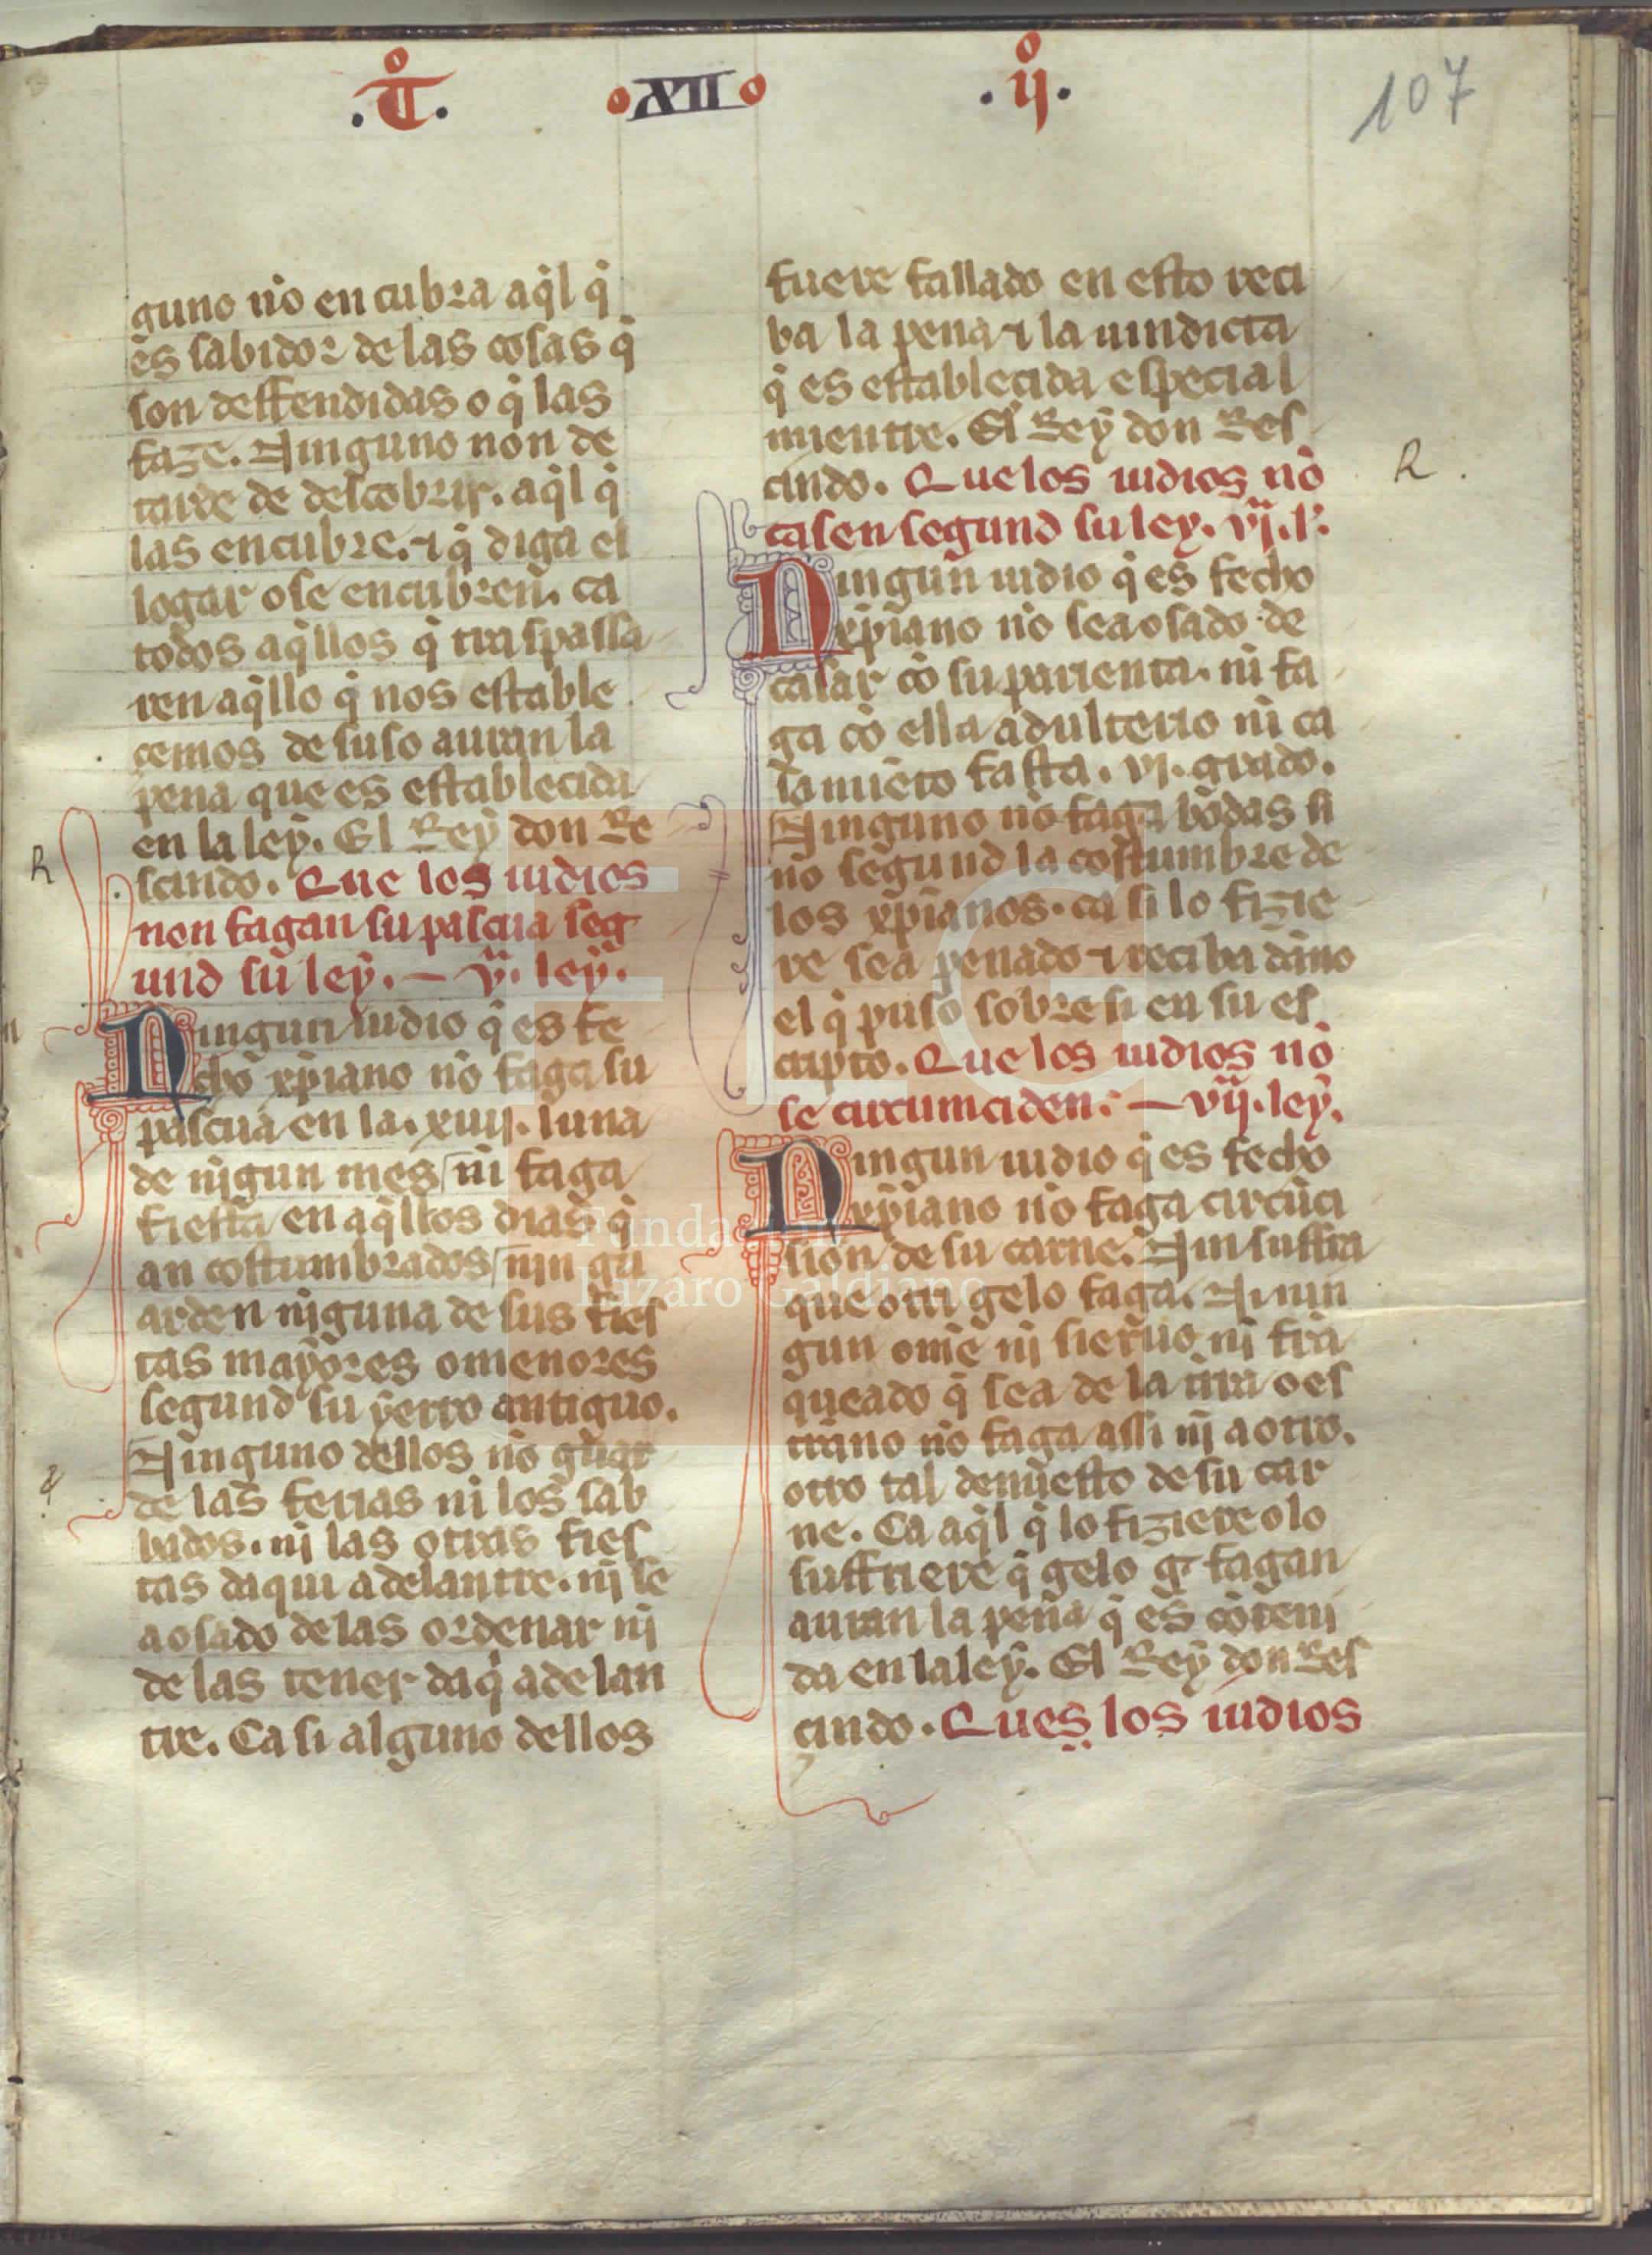 .t͞iº. XII .ijº.
107
guno nō encubra aq̃l q̃
es sabidor de las cosas q̃
son deffendidas o q̃ las
faze. Ninguno non de
tarde de descobrir. aq̃l q̃
las encubre. ⁊ q̃ diga el
logar o se encubren. ca
todos aq̃llos q̃ traspassa
ren aq̃llo q̃ nos estable
cemos de suso auran la
pena que es establecida
en la ley. El Rey don Re
scindo. Que los iudios
non fagan su pascua seg
und su ley. — v. ley.
Ningun iudio q̃ es fe
cho xp̃iano nō faga su
pascua en la. xiiij. luna
de nĩgun mes / nĩ faga
fiesta en aq̃llos dias q̃
an costumbrados / nin gu
arden nĩguna de sus fies
tas mayores o menores
segund su yerro antiguo.
Ninguno dellos nō guar
de las ferias ni los sab
bados. nj las otras fies
tas daqui adelantre. nj se
a osado de las ordenar nj
de las tener daq̃ adelan
tre. Ca si alguno dellos
fuere fallado en esto reci
ba la pena ⁊ la uindicta
q̃ es establecida especial
mientre. El Rey don Res
cindo. Que los iudios nō
casen segund su ley. vj. l.
Ningun iudio q̃ es fecho
xp̃iano nō sea osado de
casar cō su parienta. nĩ fa
ga cō ella adulterio nĩ ca
samiẽto fasta. vj. grado.
Ninguno nō faga bodas si
nō segund la costumbre de
los xp̃ianos. ca si lo fizie
re sea penado ⁊ reciba dãno
el q̃ puso sobre si en su es
cripto. Que los iudios nō
se circumciden. — vij. ley.
Ningun iudio q̃ es fecho
xp̃iano nō faga circũci
sion de su carne. Nin suffra
que otri gelo faga. Ni nin
gun ome nj sieruo nj frã
queado q̃ sea de la trra o es
trano nō faga assi nj a otro.
otro tal denuesto de su car
ne. Ca aq̃l q̃ lo fiziere o lo
suffriere q̃ gelo fagan
auran la pena q̃ es cõteni
da en la ley. El Rey don Res
cindo. Ques los iudios
R
R
FLG
Fundación
Lázaro Galdiano